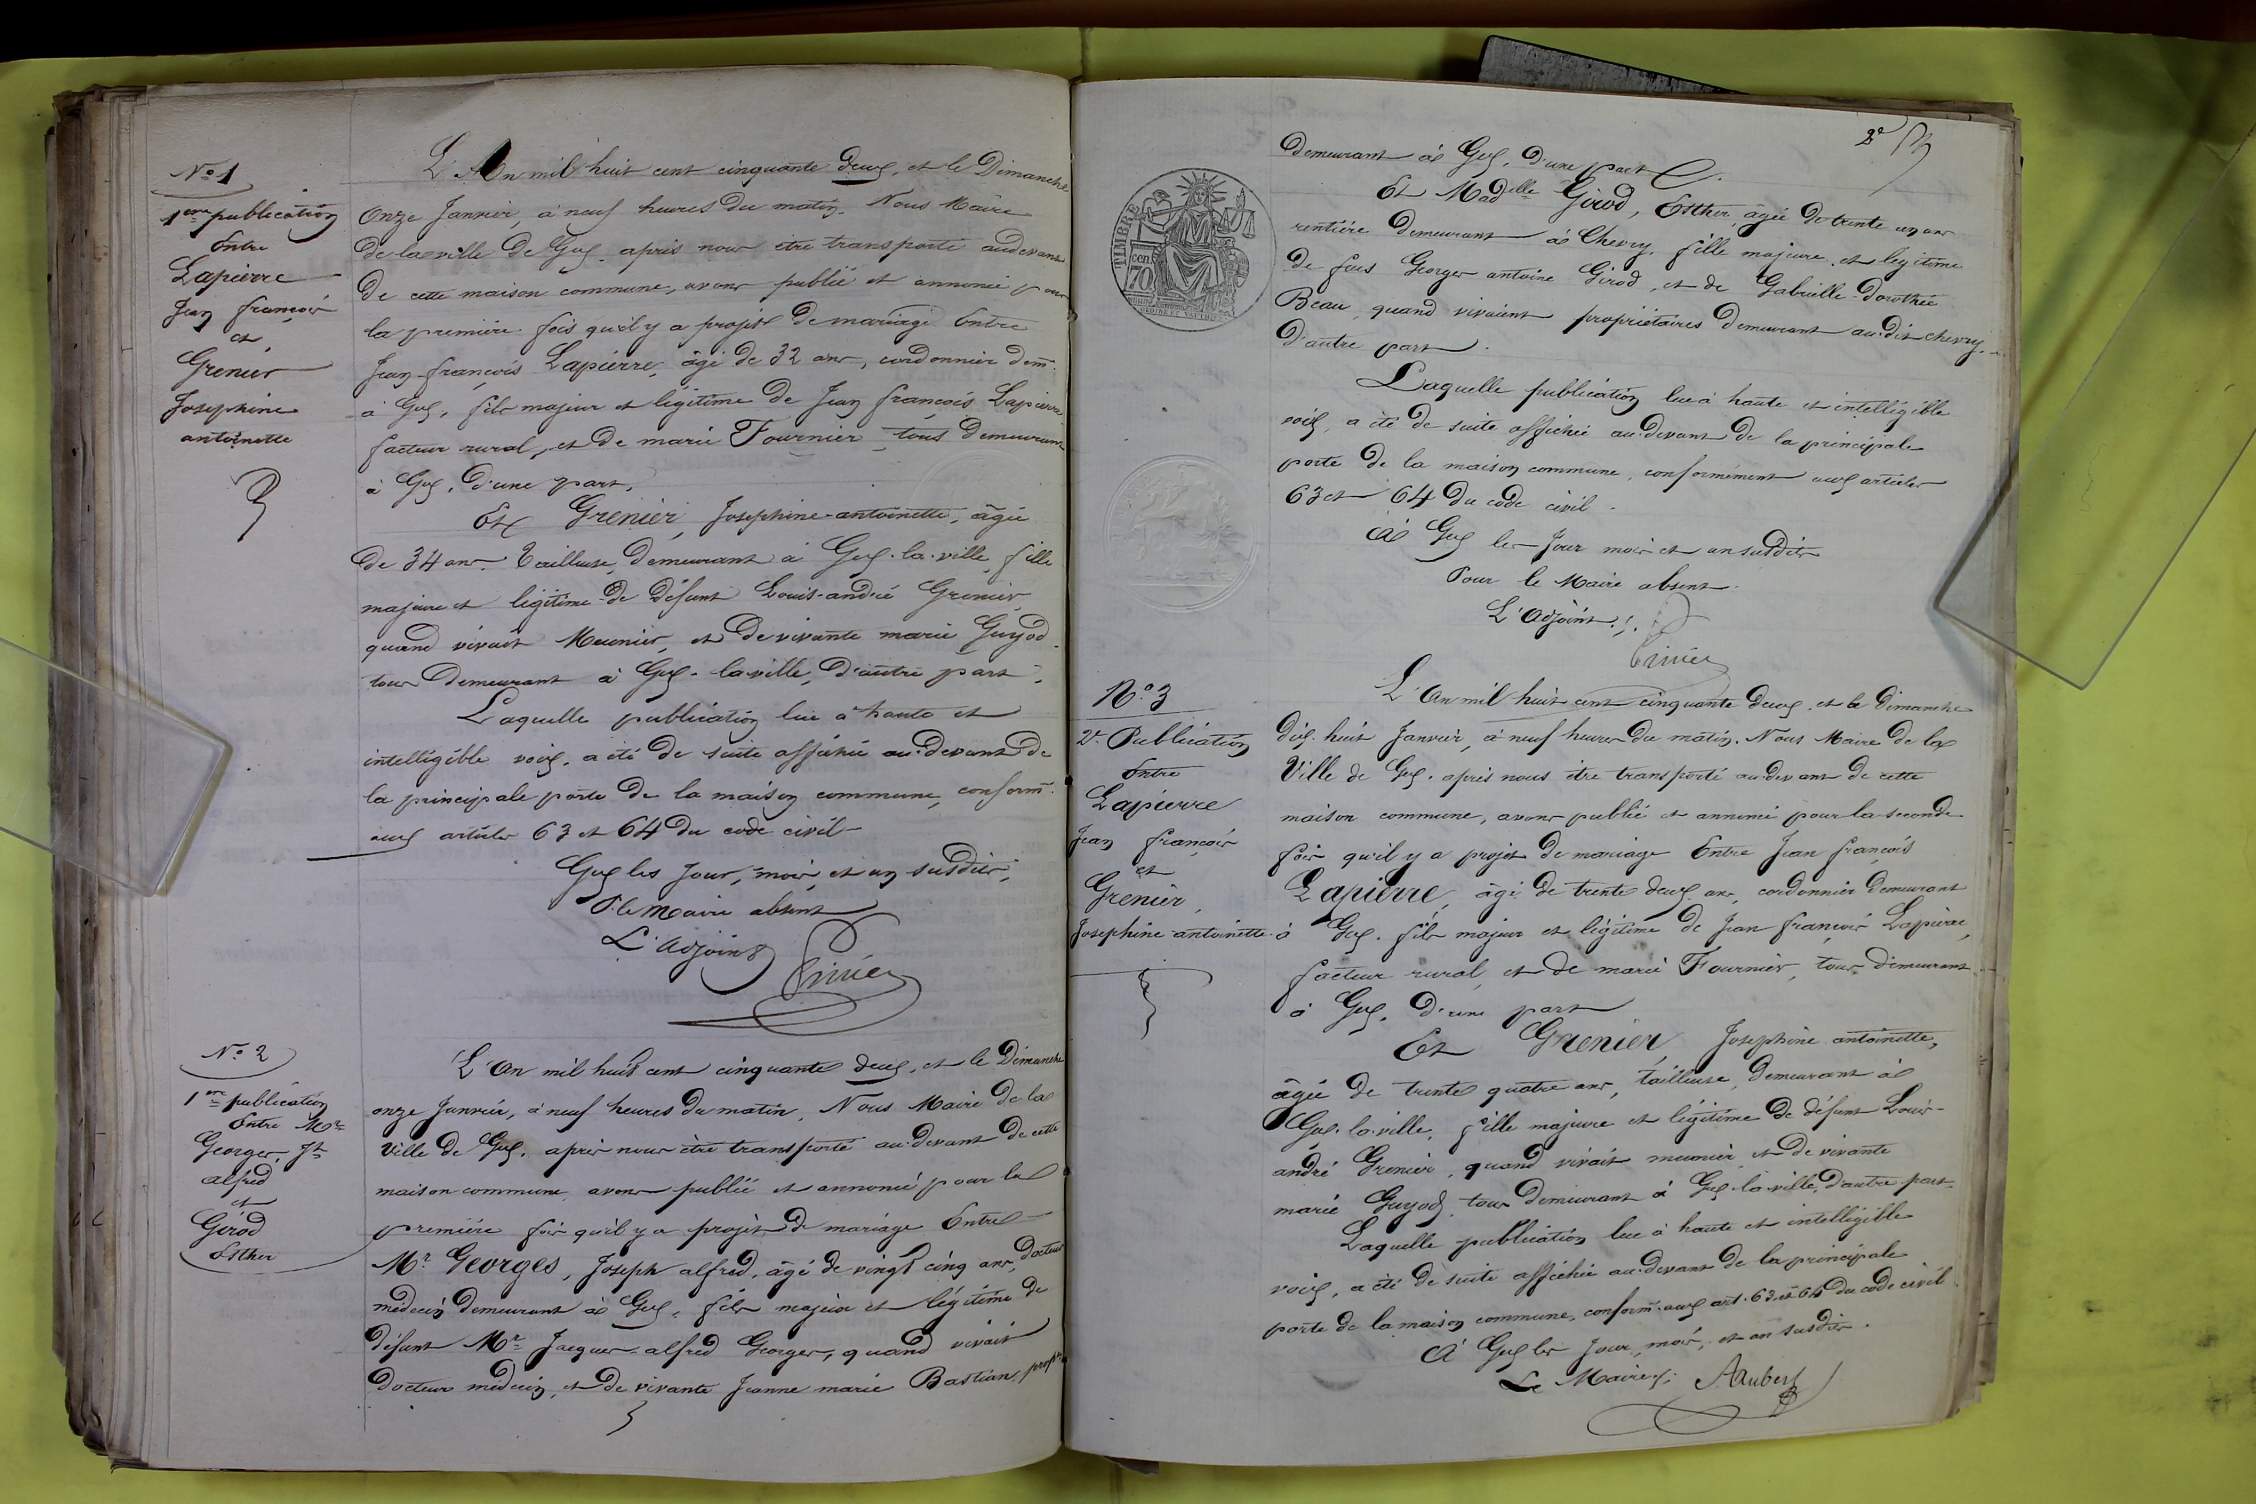 N.º 1
1ère publication
Entre
Lapierre
Jean françois
et
Grenier
Josephine
antoinette
L'An mil huit cent cinquante deux, et le Dimanche
onze Janvier, à neuf heures du matin. Nous Maire
de la ville de Gex, après nous être transporté au devant
de cette maison commune, avons publié et annoncé pour
la première fois qu'il y a projet de mariage Entre
Jean-françois Lapierre, âgé de 32 ans, cordonnier dem.t
à Gex, fils majeur et légitime de Jean françois Lapierre
facteur rural, et de marie Fournier, tous demeurant
à Gex, d'une part,
Et Grenier, Josephine-antoinette, âgée
de 34 ans, Tailleuse, demeurant à Gex-la-ville, fille
majeure et légitime de défunt Louis-andré Grenier
quand vivait Meunier, et de vivante marie Guyod
tous demeurant à Gex-la-ville, d'autre part.
Laquelle publication lue à haute et
intelligible voix, a été de suite affichée au-devant de
la principale porte de la maison commune, conform.t
aux articles 63 et 64 du code civil
Gex les Jour, mois, et an susdits,
P. le Maire absent
L'Adjoint
N.º 2
1ère publication
Entre Mr
Georges, Jh
alfred
et
Girod
Esther
L'An mil huit cent cinquante deux, et le Dimanche
onze Janvier, à neuf heures du matin, Nous Maire de la
Ville de Gex, après nous être transporté au-devant de cette
maison commune, avons publié et annoncé pour la
première fois qu'il y a projet de mariage Entre
Mr. Georges, Joseph alfred, âgé de vingt cinq ans, docteur
médecin demeurant à Gex, fils majeur et légitime de
défunt Mr. Jacques-alfred Georges, quand vivait
docteur médecin, et de vivante Jeanne marie Bastian, prop.re
2e
demeurant à Gex, d'une part
Et Madelle Girod, Esther, âgée de trente un ans
rentière demeurant à Chevry, fille majeure et légitime
de feus Georges antoine Girod, et de Gabrielle-Dorothée
Beau, quand vivaient propriétaires demeurant au-dit chevry,
d'autre part.
Laquelle publication lue à haute et intelligible
voix, a été de suite affichée au-devant de la principale
porte de la maison commune, conformément aux articles
63 et 64 du code civil.
à Gex les Jour mois et an susdits
Pour le Maire absent
L'Adjoint
TIMBRE
70
cen.
N.º 3
2e Publication
Entre
Lapierre
Jean françois
et
Grenier,
Josephine-antoinette
L'An mil huit cent cinquante deux, et le Dimanche
dix-huit Janvier, à neuf heures du matin. Nous Maire de la
Ville de Gex, après nous être transporté au-devant de cette
maison commune, avons publié et annoncé pour la seconde
fois qu'il y a projet de mariage Entre Jean françois
Lapierre, âgé de trente deux ans, cordonnier demeurant
à Gex, fils majeur et légitime de Jean françois Lapierre,
facteur rural, et de marie Fournier, tous demeurant
à Gex, d'une part
Et Grenier, Josephine antoinette,
âgée de trente quatre ans, tailleuse, demeurant à
Gex-la-ville, fille majeure et légitime de défunt Louis-
andré Grenier, quand vivait meunier, et de vivante
marie Guyod, tous demeurant à Gex-la-ville, d'autre part
Laquelle publication lue à haute et intelligible
voix, a été de suite affichée au-devant de la principale
porte de la maison commune, conform.t aux art. 63 et 64 du code civil.
à Gex les Jour, mois, et an susdits.
Le Maire, Aubert